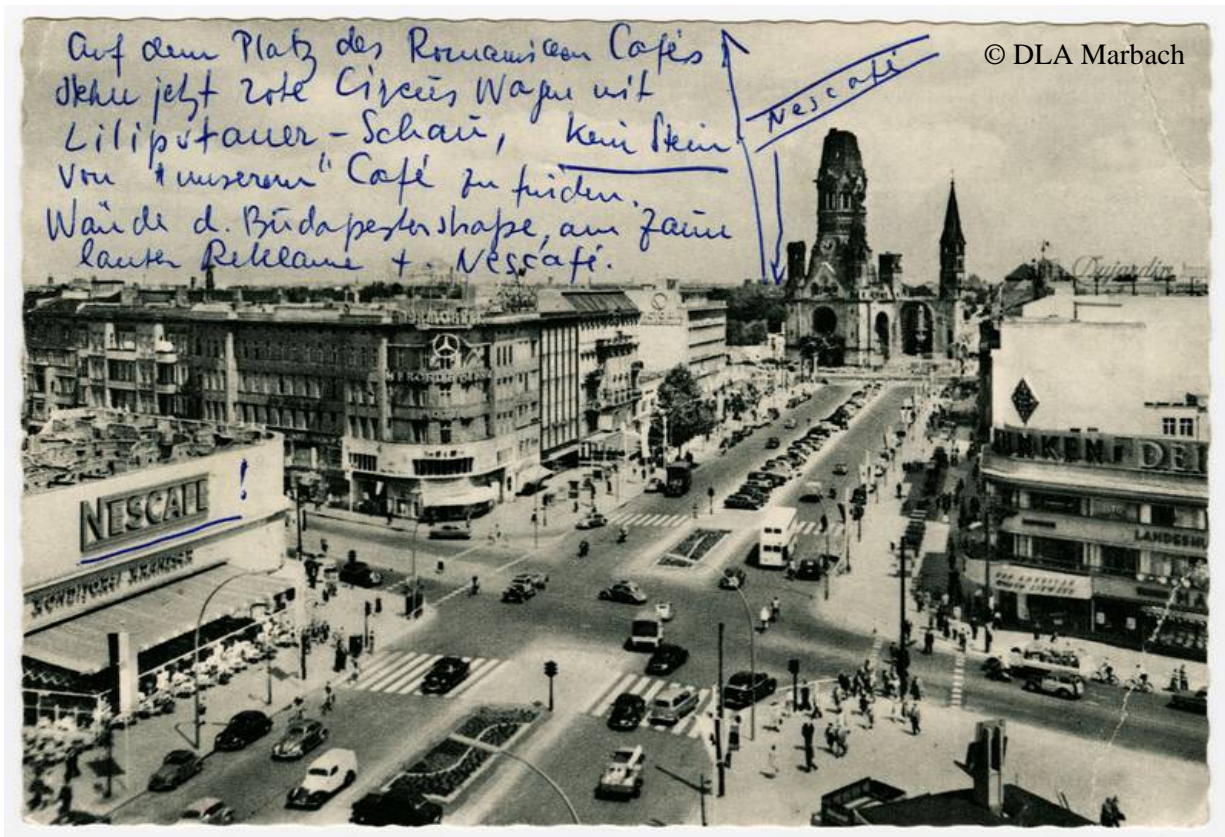 Auf dem Platz des Romanischen Cafés
stehn jetzt rote Circus Wagen mit
Liliputaner-Schau, kein Stein
von "unserem" Café zu finden.
Wände d. Budapesterstraße, am Zaun
lauter Reklame + Nescafé.
Nescafé
© DLA Marbach
Dujardin
NESCAFÉ !
KONDITOREI KRANZLER
LANDESH